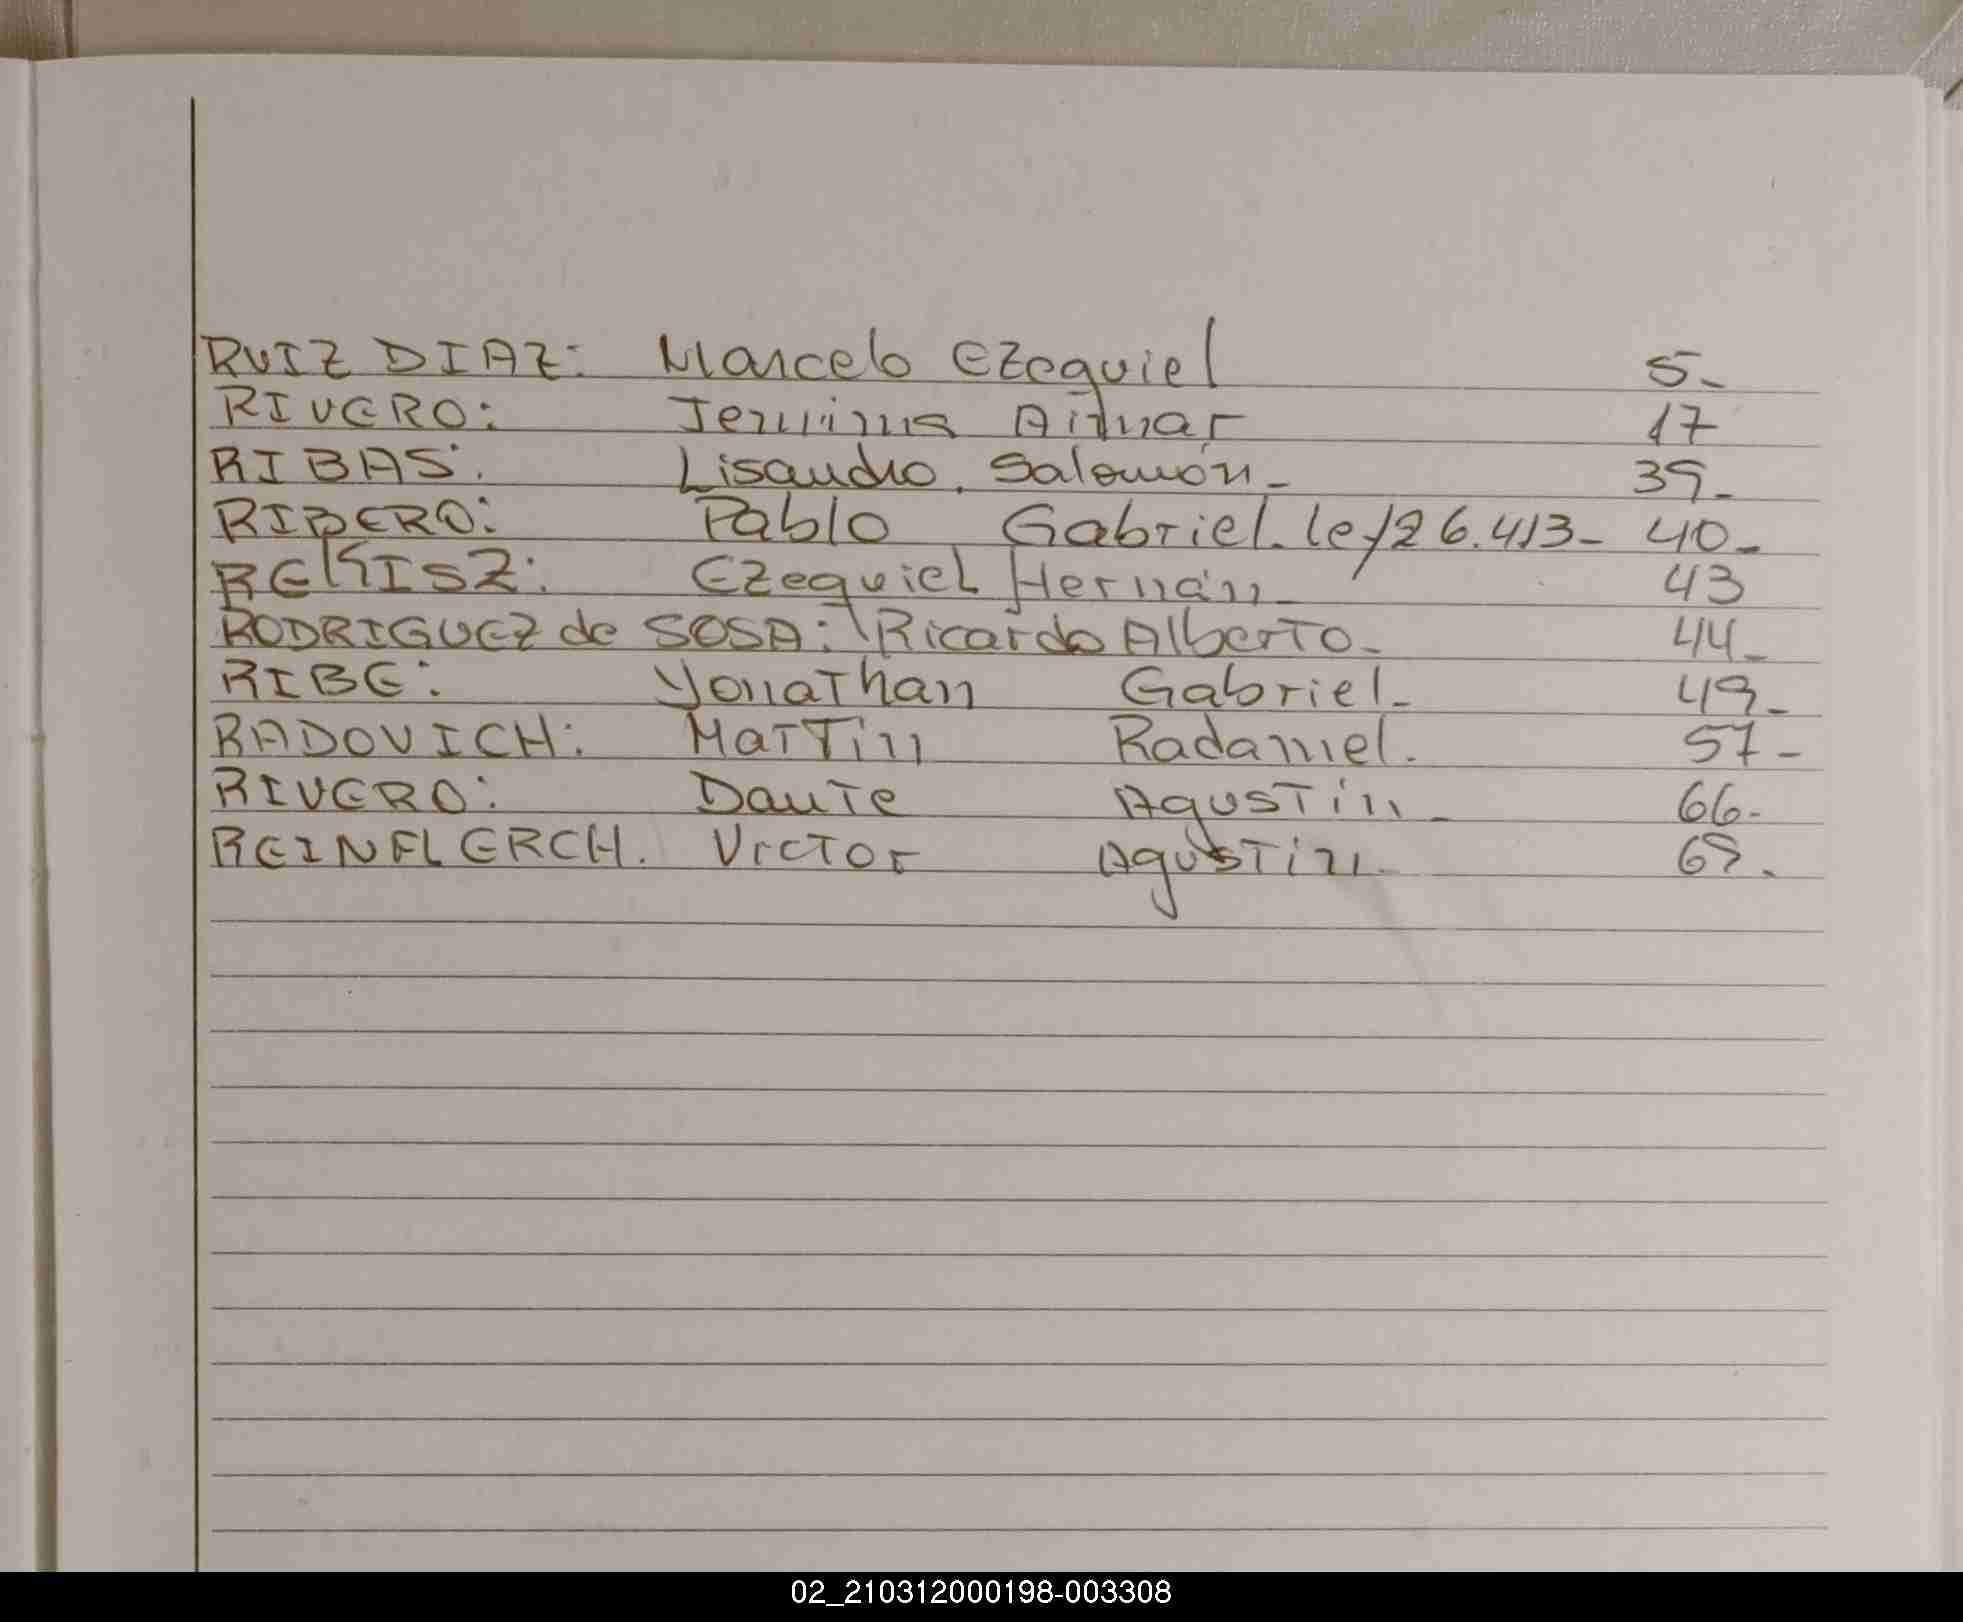 RUIZ DIAZ: Marcelo Ezequiel 5-
RIVERO: Jemima Ainar 17
RIBAS: Lisandro. Salomón- 39-
RIBERO: Pablo Gabriel. ley26.413- 40-
REKISZ: Ezequiel Hernán- 43
RODRIGUEZ de SOSA: Ricardo Alberto- 44-
RIBE: Yonathan Gabriel- 49-
RADOVICH: Martin Radamel. 57-
RIVERO: Dante Agustin- 66-
REINFLERCH. Victor Agustin- 69.
02_210312000198-003308